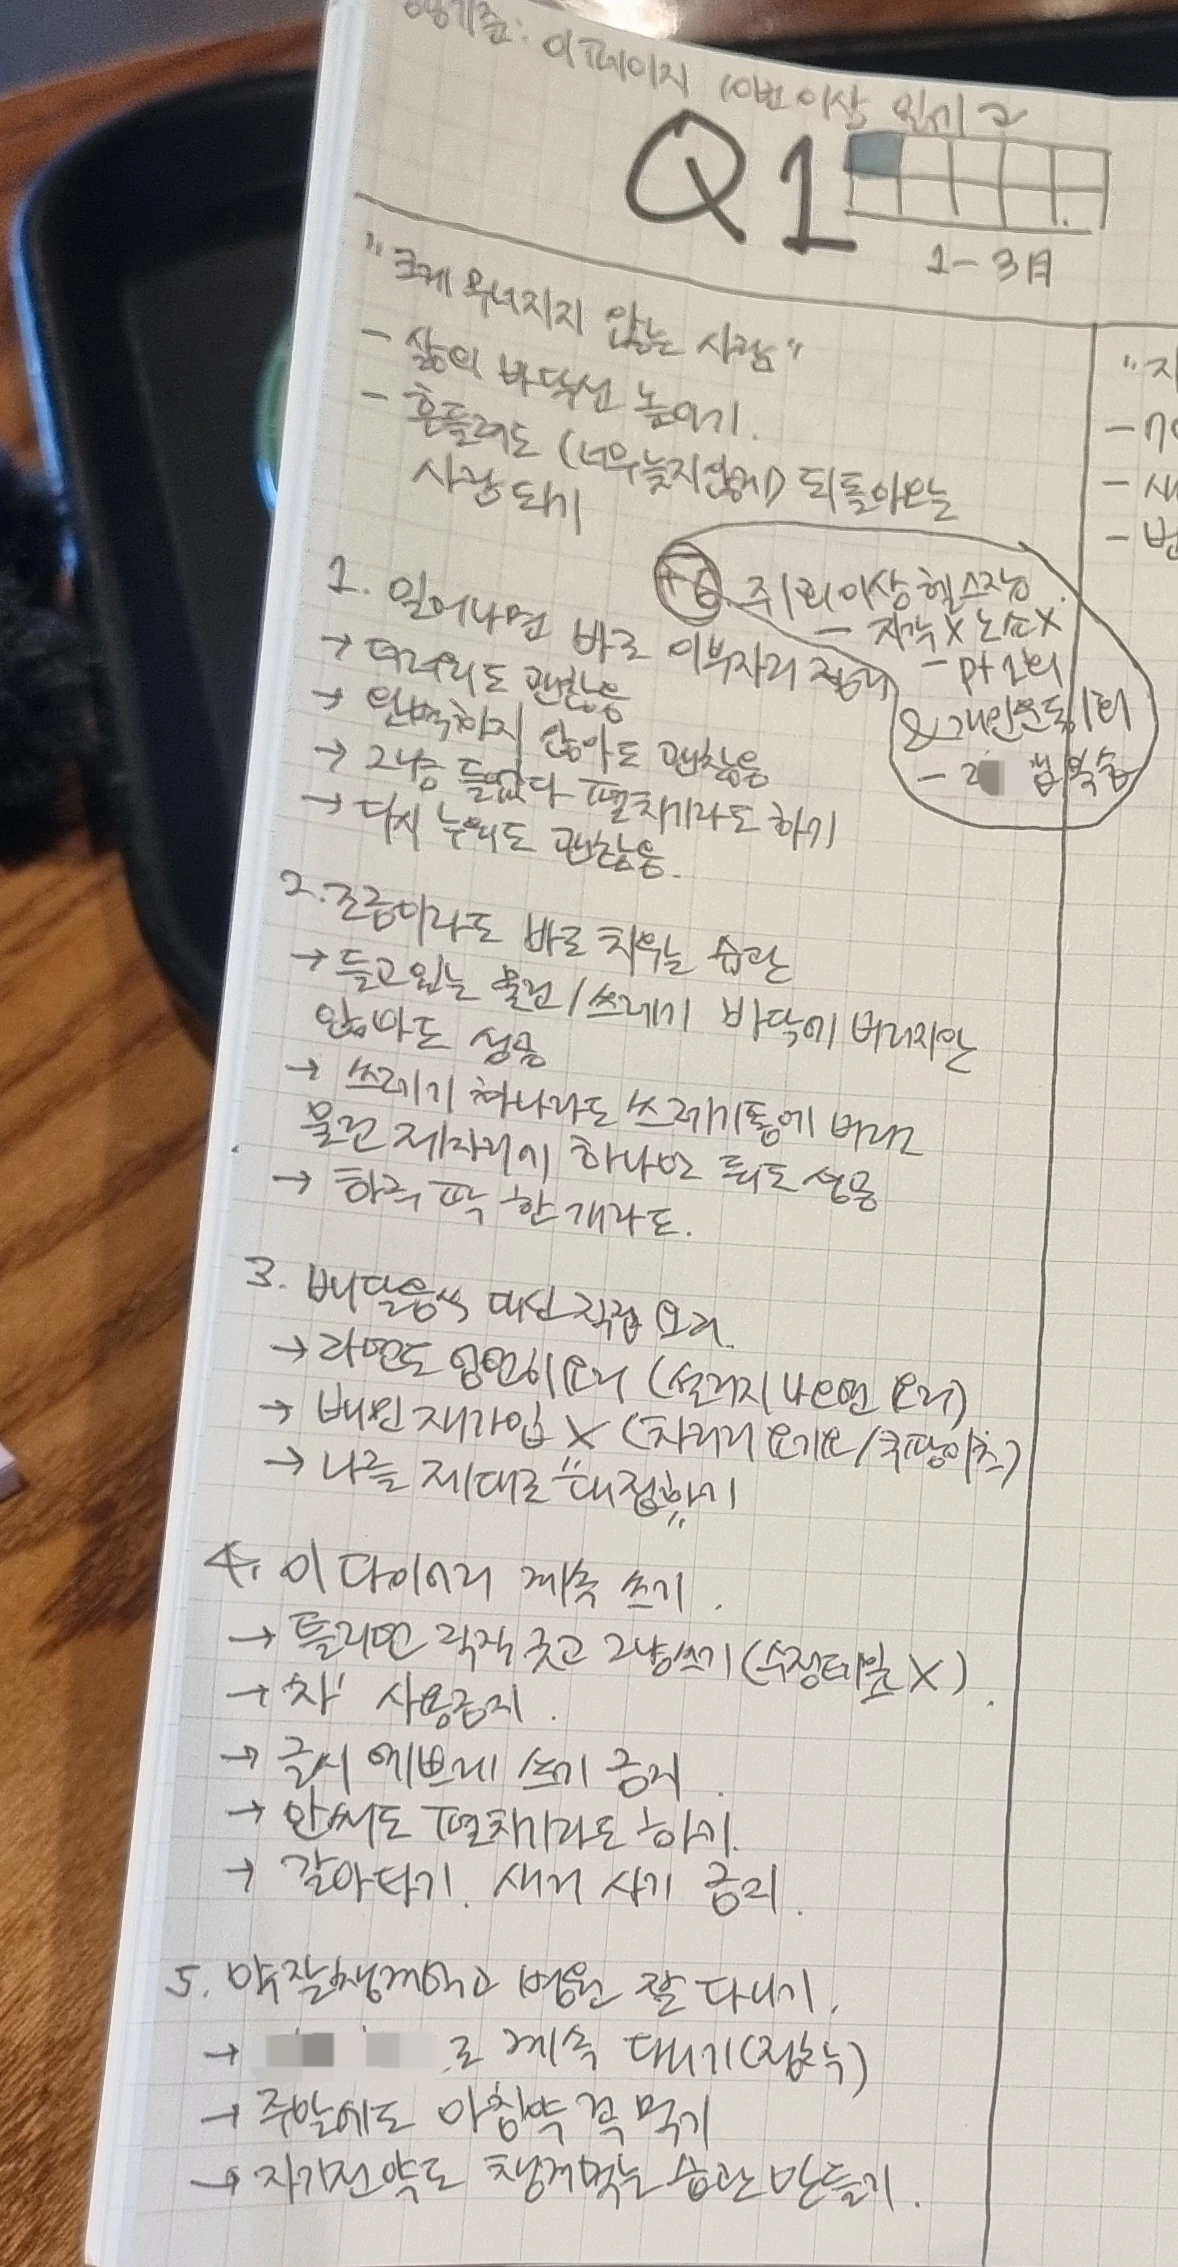 이 페이지 10번 이상 읽기
Q1
1-3月
"크게 무너지지 않는 사람"
- 삶의 바닥선 높이기.
- 흔들려도 (너무 늦지 않게) 되돌아오는
사람 되기
+6. 주1회 이상 헬스장
- 지각X 노쇼X
- pt 2회
& 개인운동 1회
쌤 복습
1. 일어나면 바로 이부자리 정리
→ 더러워도 괜찮음
→ 완벽하지 않아도 괜찮음
→ 그냥 들었다 펼치기라도 하기
→ 다시 누워도 괜찮음.
2. 조금이라도 바로 치우는 습관
→ 들고있는 물건/쓰레기 바닥에 버리지만
않아도 성공
→ 쓰레기 하나라도 쓰레기통에 버리고
물건 제자리에 하나만 둬도 성공
→ 하루 딱 한 개라도.
3. 배달음식 대신 직접 요리.
→ 라면도 엄연히 요리 (설거지 나오면 요리)
→ 배민 재가입 X (차라리 요기요/쿠팡이츠)
→ 나를 제대로 "대접하기"
4. 이 다이어리 계속 쓰기.
→ 틀리면 직직 긋고 그냥쓰기 (수정테이프 X).
→ '차' 사용금지.
→ 글씨 예쁘게 쓰기 금지.
→ 안써도 펼치기라도 하기.
→ 갈아타기. 새거 사기 금지.
5. 약 잘 챙겨먹고 병원 잘 다니기.
→ 로 계속 다니기(정착)
→ 주말에도 아침약 꼭 먹기
→ 자기전 약도 챙겨먹는 습관 만들기.
"지
-
- 새
- 번